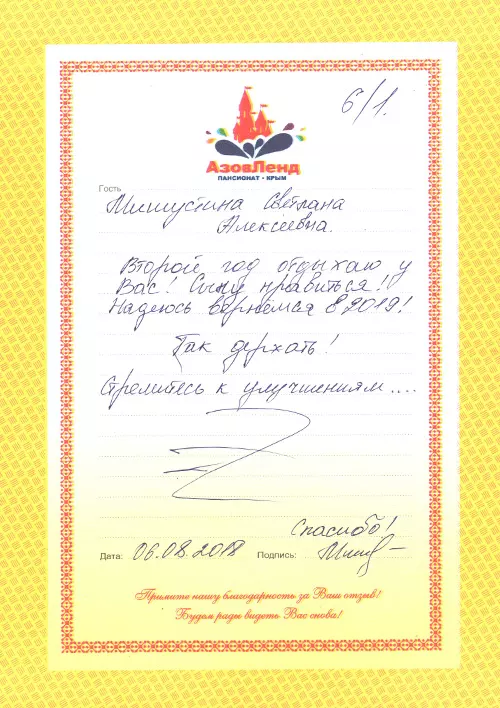 6/1.
АзовЛенд
ПАНСИОНАТ • КРЫМ
Гость
Мишустина Светлана
Алексеевна.
Второй год отдыхаю у
Вас! Сыну нравиться!
Надеюсь вернёмся в 2019!
Так держать!
Стремитесь к улучшениям....
Спасибо!
Дата: 06.08.2018 Подпись:
Примите нашу благодарность за Ваш отзыв!
Будем рады видеть Вас снова!